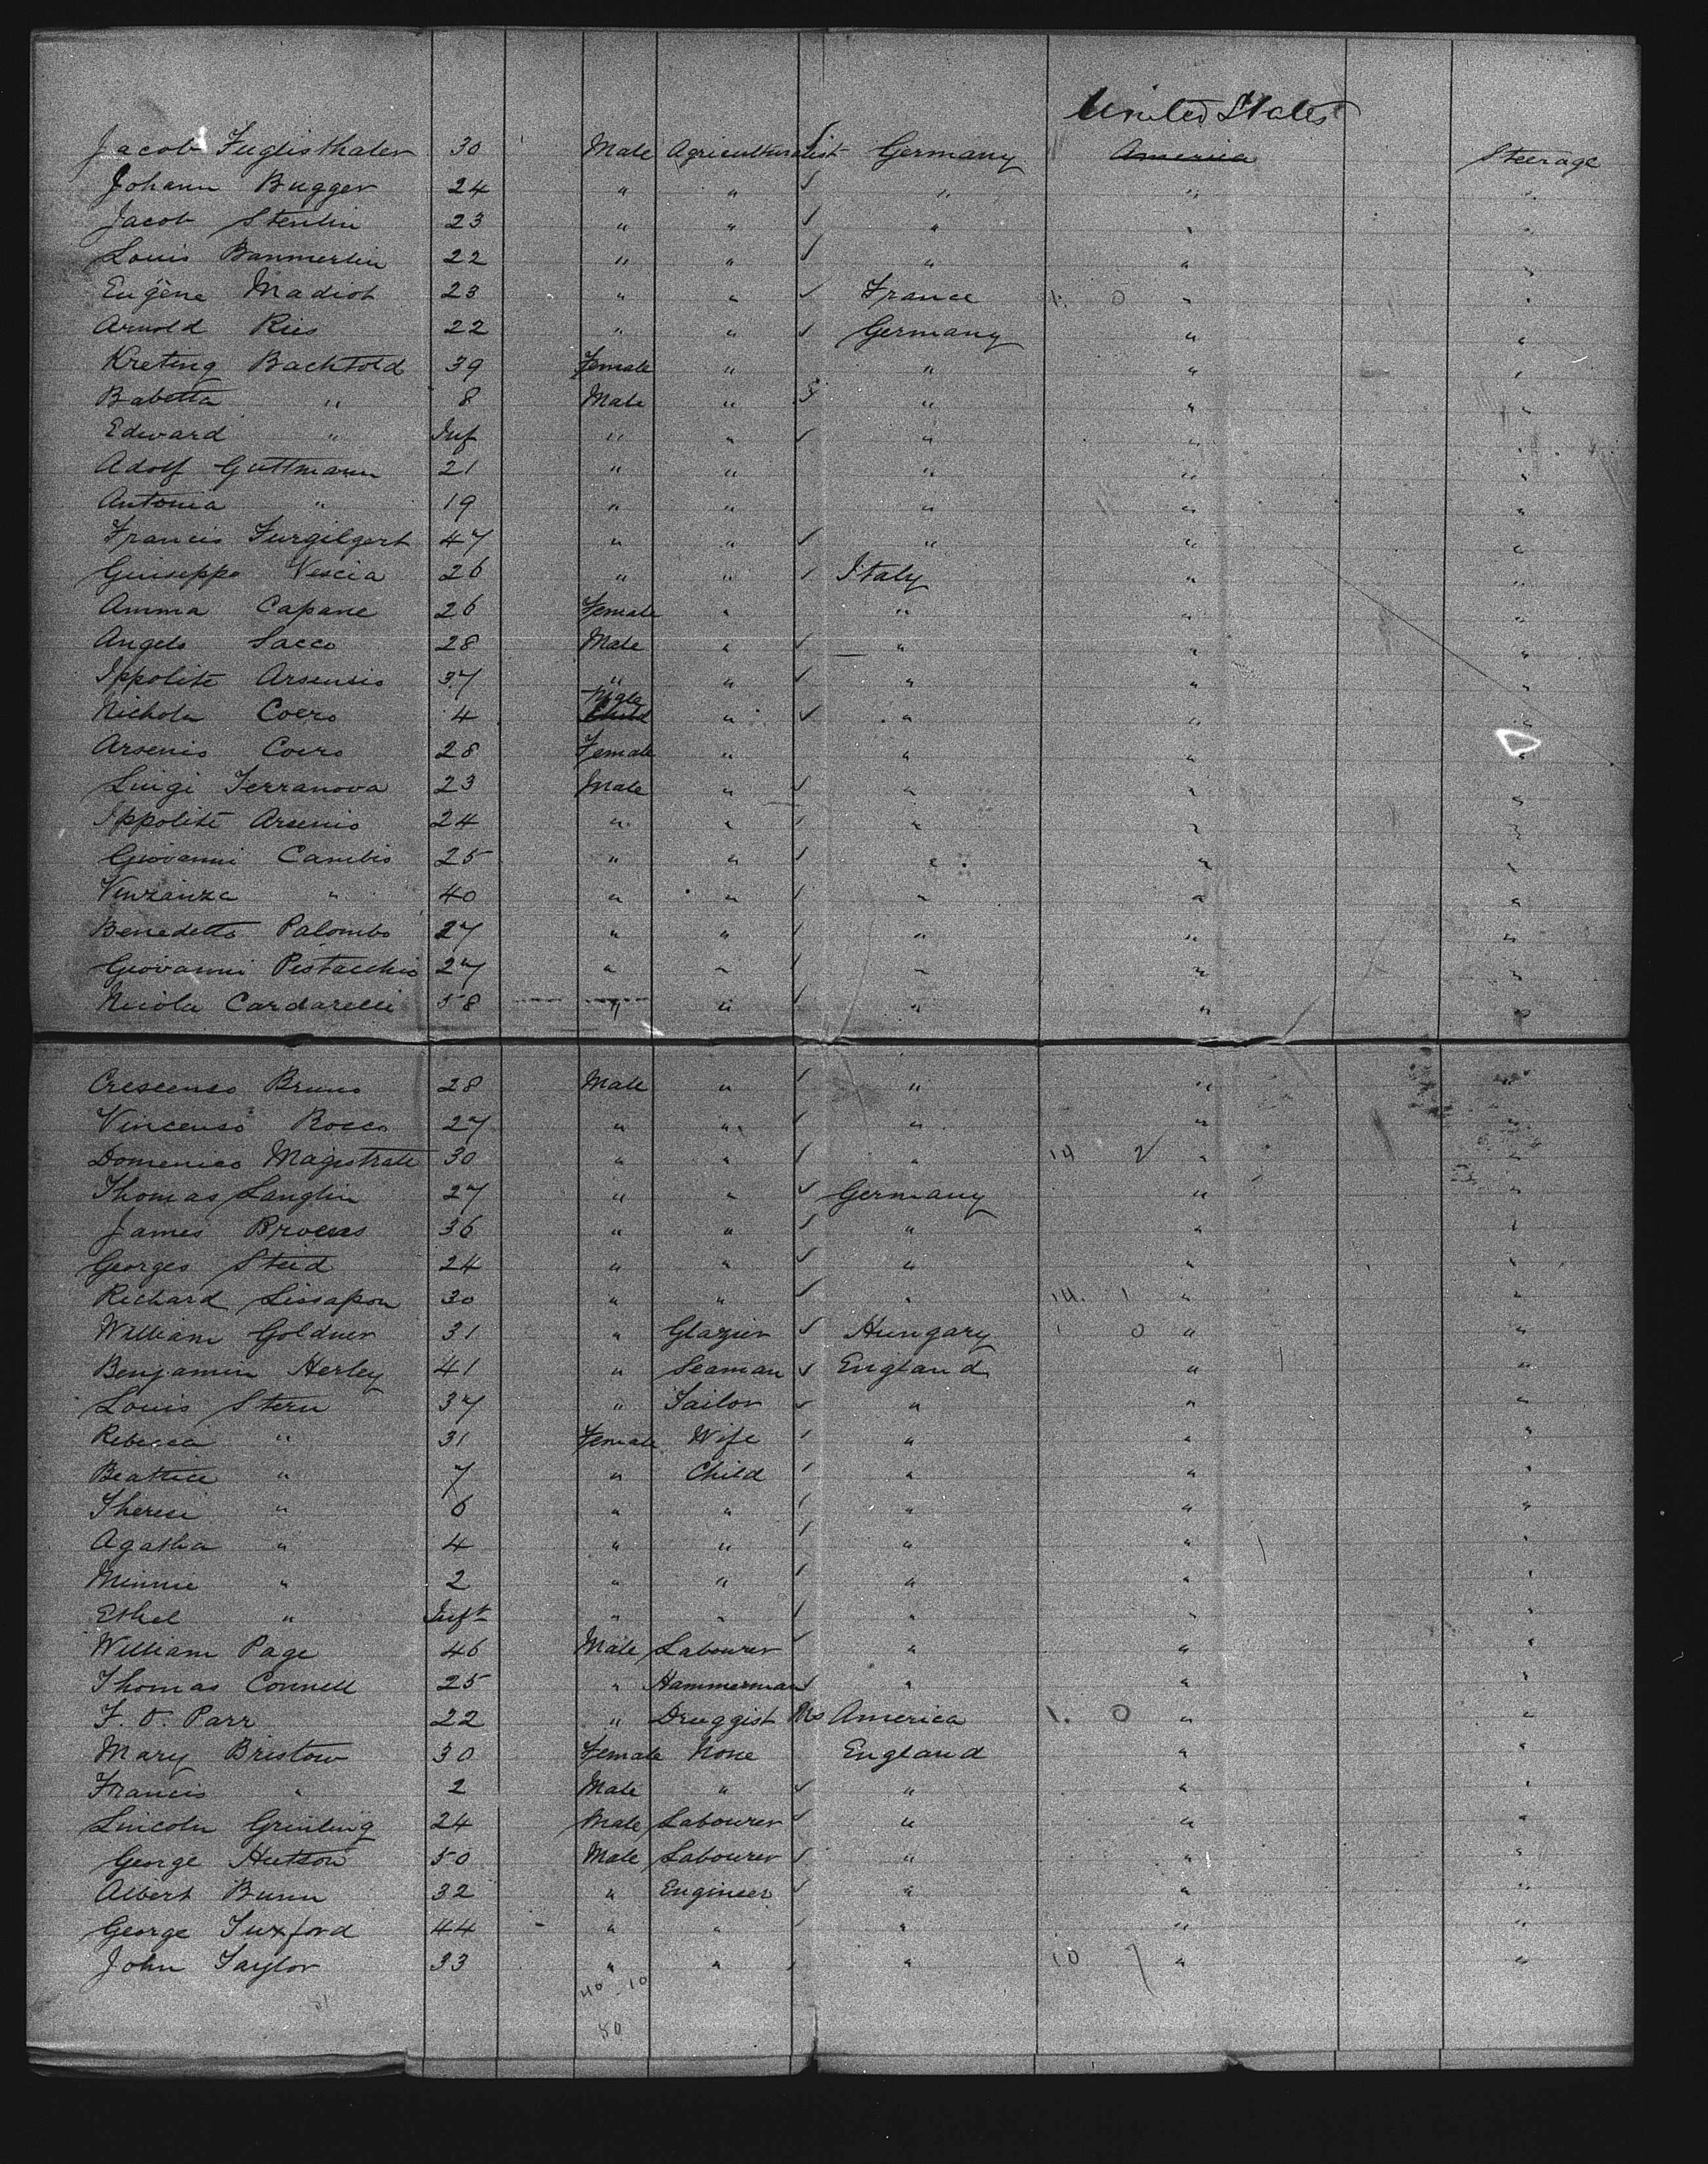 United States
Jacob Fuglisthaler 30 Male Agriculturalist Germany America Steerage
Johann Bugger 24 " " " " "
Jacob Stenlin 23 " " " " "
Louis Banmerlin 22 " " " " "
Eugène Madiot 23 " " France 1. 0 " "
Arnold Ries 22 " " Germany " "
Kreting Bachtold 39 Female " " " "
Babetta " 8 Male " " " "
Edward " Inf " " " " "
Adolf Guttmann 21 " " " " "
Antonia " 19 " " " " "
Francis Furgilgert 47 " " " " "
Guiseppe Vescia 26 " " Italy " "
Amma Capane 26 Female " " " "
Angelo Sacco 28 Male " " " "
Ippolite Arsensio 37 " " " " "
Male
Nichola Coero 4 Child " " " "
Arsenio Coero 28 Female " " " "
Luigi Terranova 23 Male " " " "
Ippolite Arsenio 24 " " " " "
Giovanni Cambio 25 " " " " "
Vinzanza " 40 " " " " "
Benedetto Palombo 27 " " " " "
Giovanni Pistacchio 27 " " " " "
Nicola Cardarelli 58 " " " " "
Crescenso Bruno 28 Male " " " "
Vincenso Rocco 27 " " " " "
Domenico Magistrate 30 " " " 14 2 " "
Thomas Langlin 27 " " Germany " "
James Brocas 36 " " " " "
Georges Steid 24 " " " " "
Richard Lissapon 30 " " " 14. 1 " "
William Goldner 31 " Glazier Hungary 1 0 " "
Benjamin Herley 41 " Seaman England " "
Louis Stern 37 " Tailor " " "
Rebecca " 31 Female Wife " " "
Beatrice " 7 " Child " " "
Therese " 6 " " " " "
Agatha " 4 " " " " "
Minnie " 2 " " " " "
Ethel " Inft " " " " "
William Page 46 Male Labourer " " "
Thomas Connell 25 " Hammerman " " "
F. O. Parr 22 " Druggist America 1. 0 " "
Mary Bristow 30 Female None England " "
Francis " 2 Male " " " "
Lincoln Grinling 24 Male Labourer " " "
George Hutson 50 Male Labourer " " "
Albert Bunn 32 " Engineer " " "
George Tuxford 44 " " " " "
John Taylor 33 " " " 10 7 " "
40 10
50